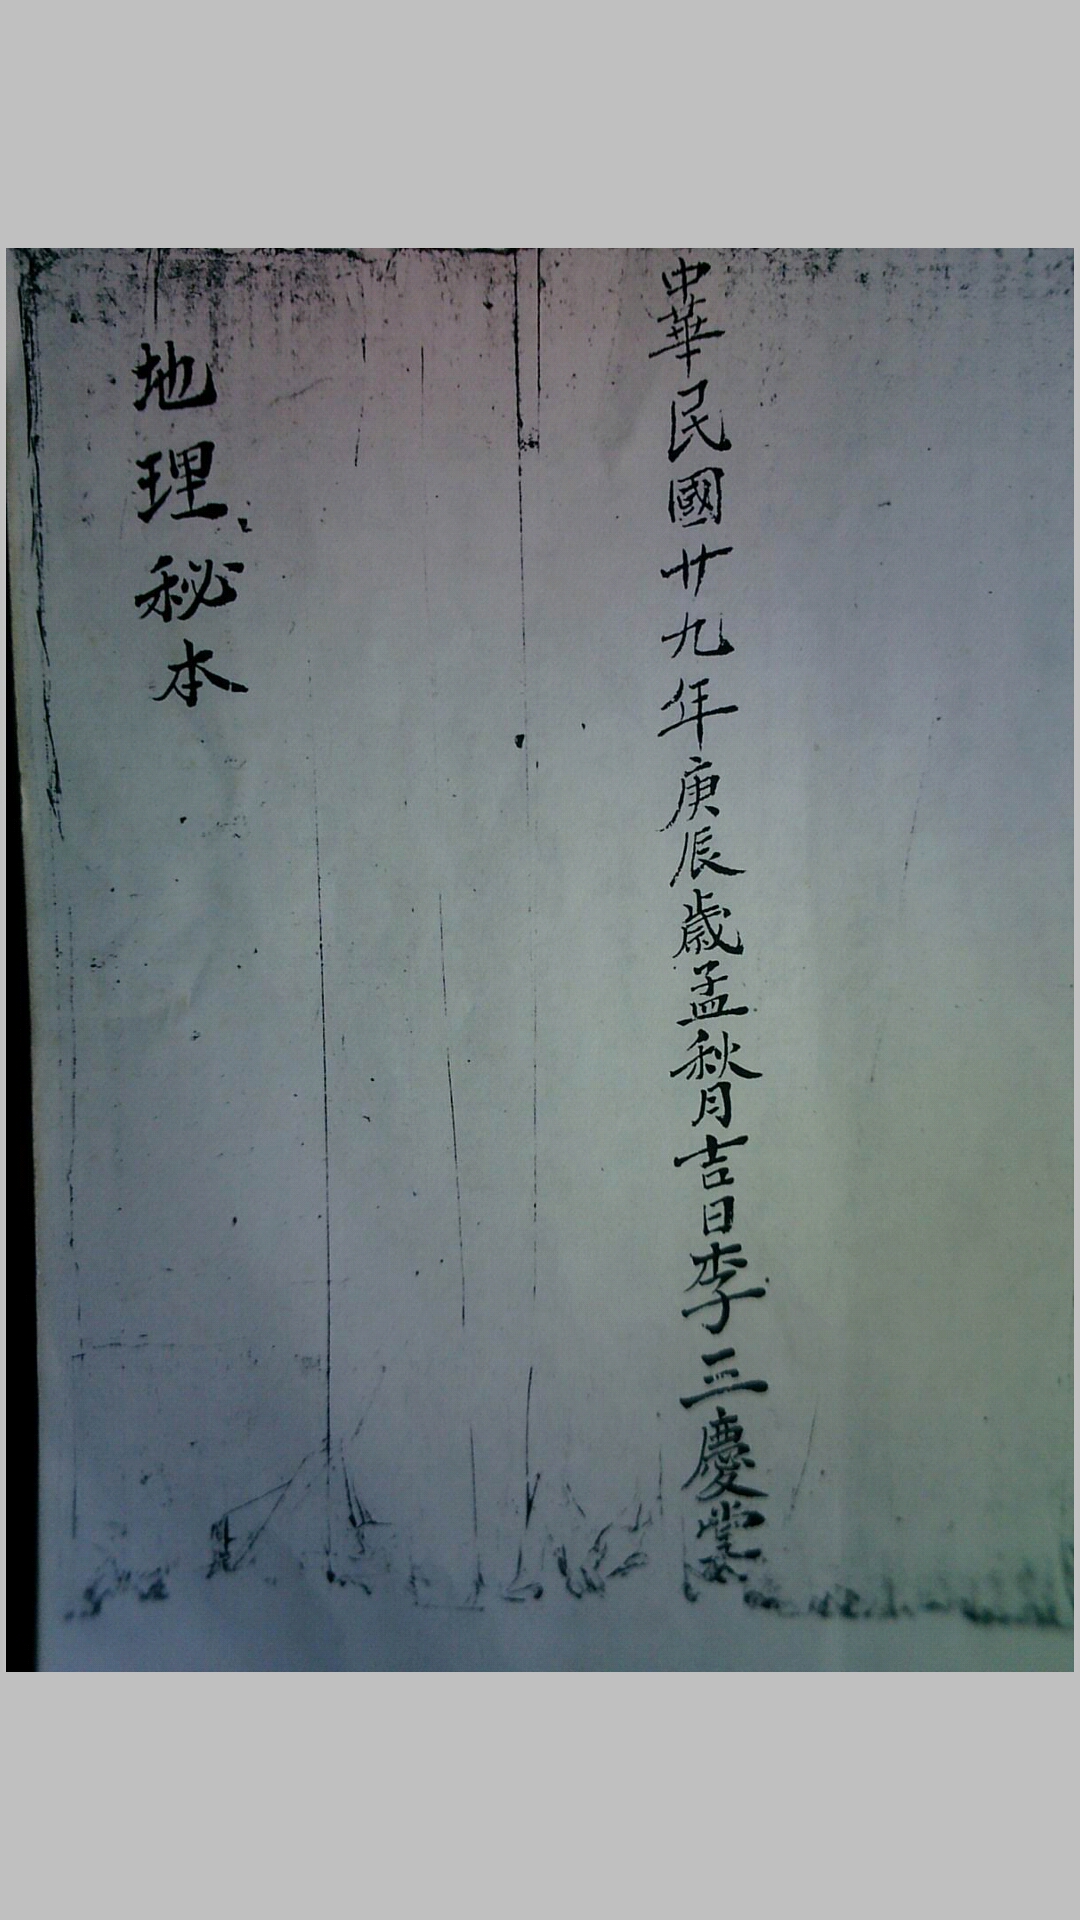 中華民國廿九年庚辰歲孟秋月吉日李三慶堂
地理秘本